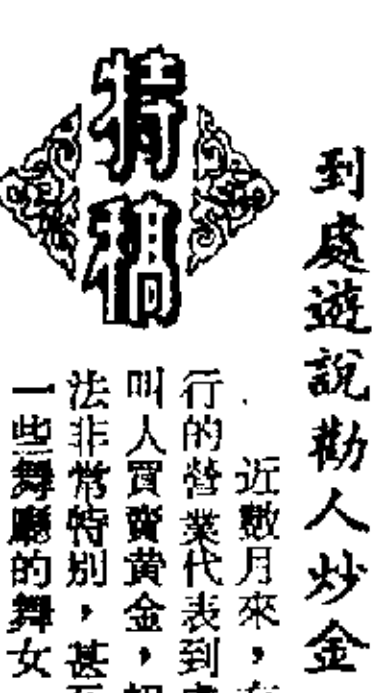 到處遊說勸人炒金
特稿
近數月來，
行的營業代表到
叫人買賣黃金，
法非常特別，甚
一些舞廳的舞女